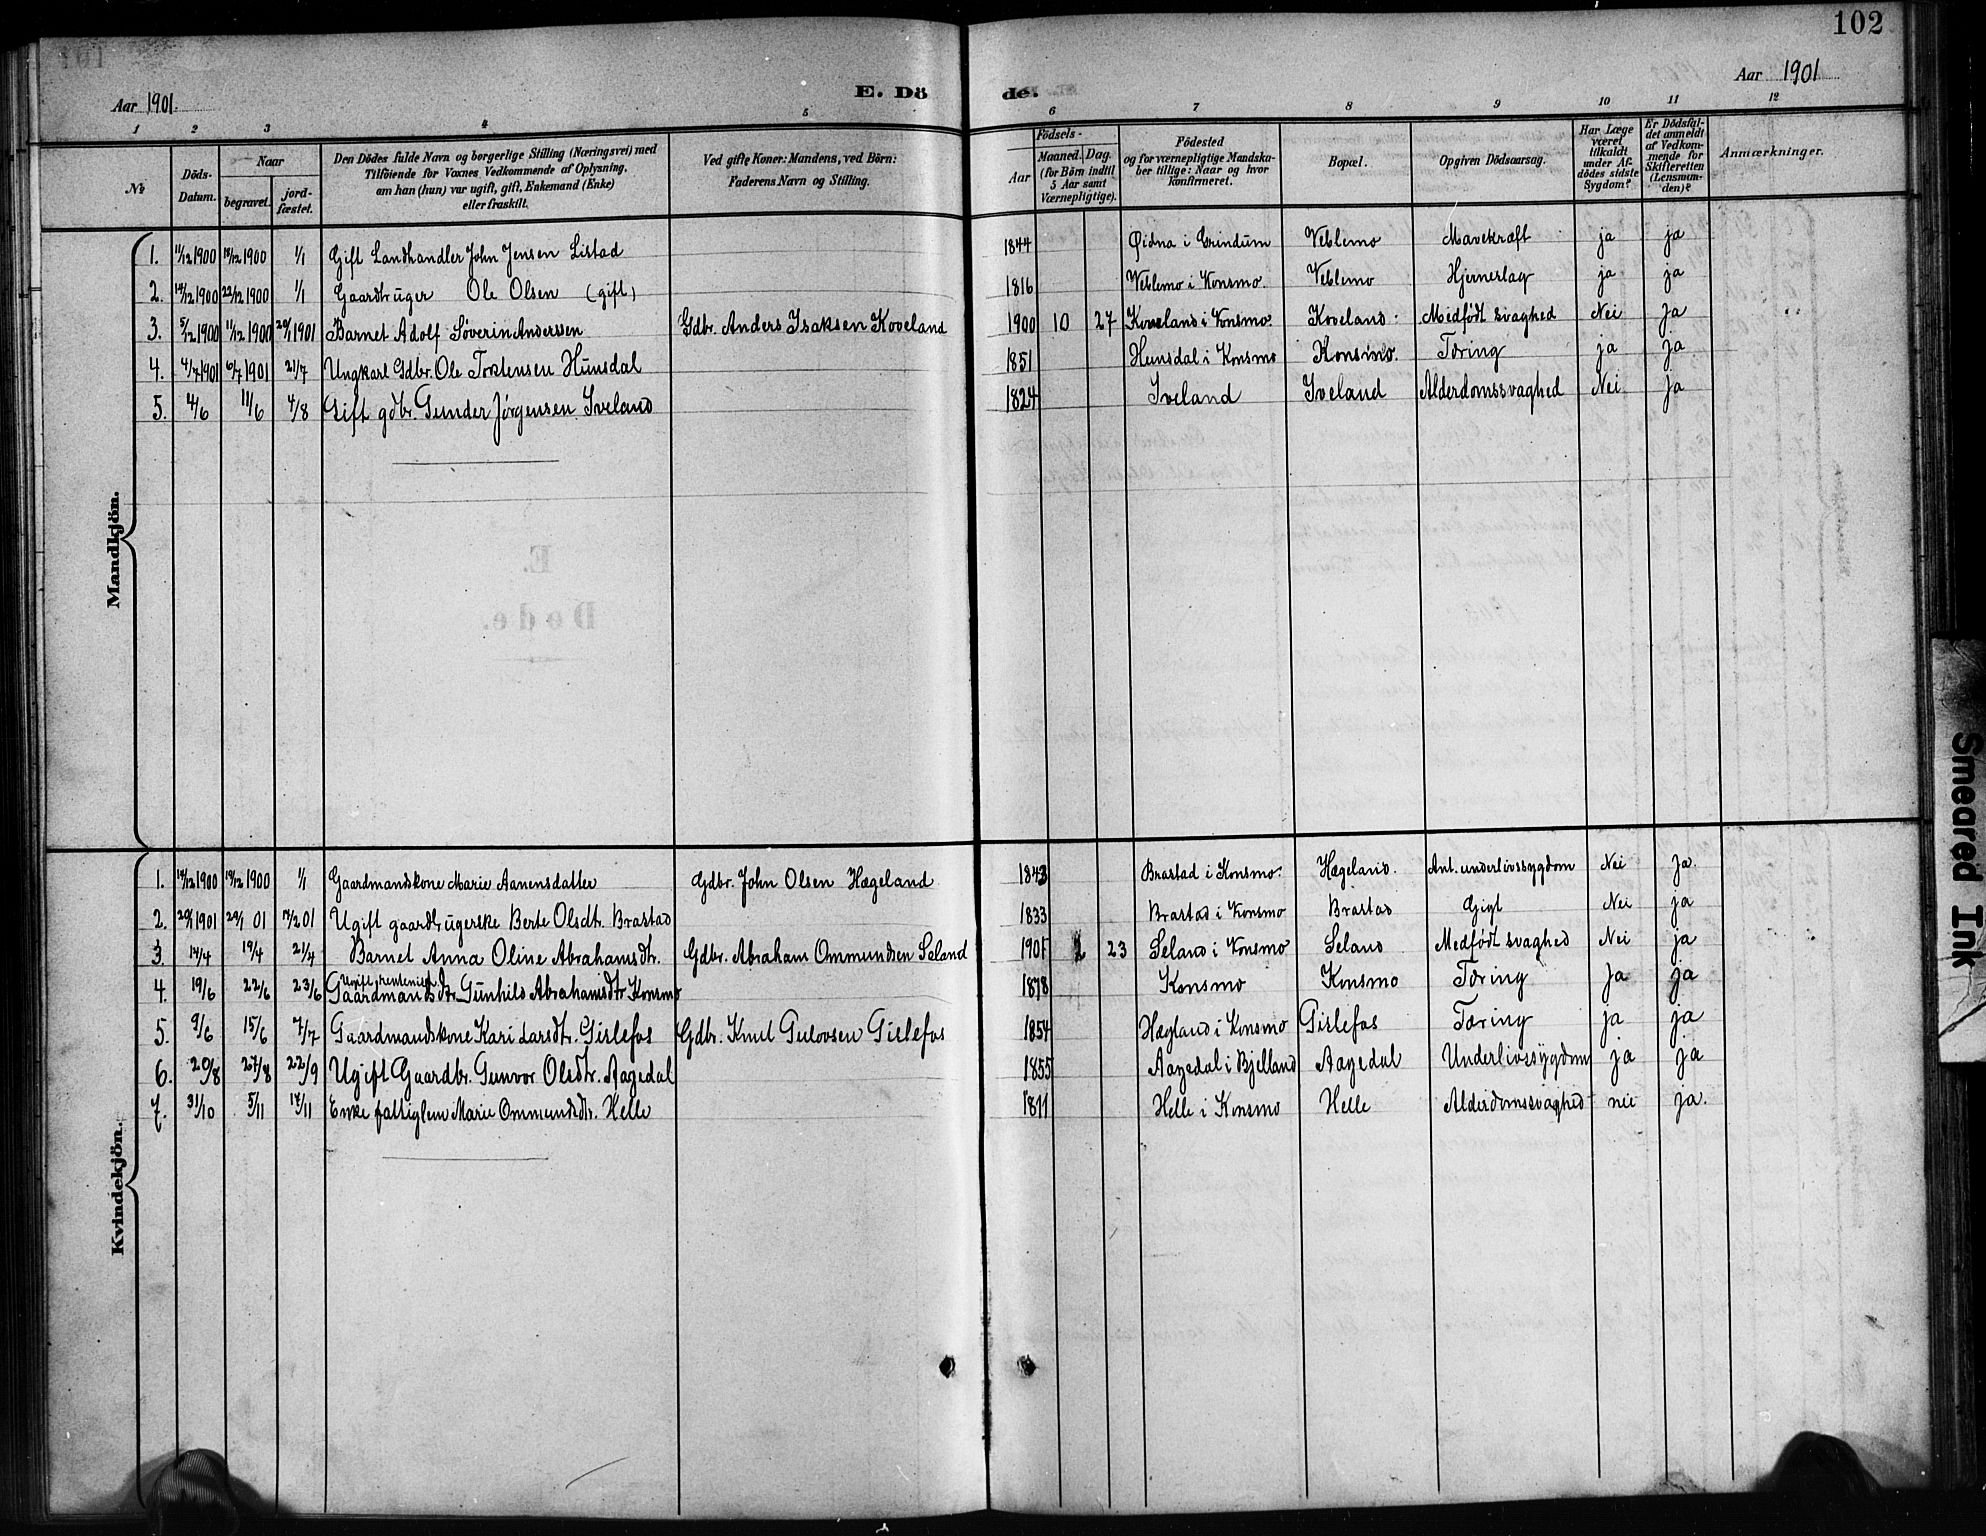 102
Aar 1901.
E. Dö de.
Aar 1901
1 2 3 4 5 6 7 8 9 10 11 12
No
Döds-Datum.
Naar
begravet.
jord-fæstet.
Den Dödes fulde Navn og borgerlige Stilling (Næringsvei) med
Tilföiende for Voxnes Vedkommende af Oplysning,
om han (hun) var ugift, gift, Enkemand (Enke)
eller fraskilt.
Ved gifte Koner: Mandens, ved Börn:
Faderens Navn og Stilling.
Födsels-
Aar
Maaned. Dag.
(for Börn indtil
5 Aar samt
Værnepligtige).
Födested
og for værnepligtige Mandska-
ber tillige: Naar og hvor
konfirmeret.
Bopæl.
Opgiven Dödsaarsag.
Har Læge
været
tilkaldt
under Af-
dödes sidste
Sygdom?
Er Dödsfal-
det anmeldt
af Vedkom-
mende for
Skifteretten
(Lensman-
den)?
Anmærkninger.
Mandkjön.
1. 11/12 1900 /12 1900 1/1 Gift Landhandler John Jensen Listad 1844 Øidna i Grindum Veblemo Mavekræft ja ja
2. 14/12 1900 22/12 1900 1/1 Gaardbruger Ole Olsen (gift) 1816 Veblemo i Konsmo. Veblemo Hjerneslag ja ja
3. 5/12 1900 11/12 1900 20/1 1901 Barnet Adolf Søverin Anderssen Gdbr. Anders Isaksen Koveland 1900 10 27 Koveland i Konsmo. Koveland. Medfødt svaghed Nei Ja
4. 4/7 1901 6/7 1901 21/7 Ungkarl Gdbr. Ole Torstensen Hunsdal 1851 Hunsdal i Konsmo Konsmo. Tæring ja ja
5. 4/6 11/6 4/8 Gift gdbr. Gunder Jørgensen Iveland 1824 Iveland Iveland Alderdomssvaghed Nei Ja
Kvindekjön.
1. 14/12 1900 19/12 1900 1/1 Gaardmandskone Marie Aanensdatter Gdbr. John Olsen Hægeland 1843 Brastad i Konsmo. Hægeland. Ant. underlivssygdom Nei Ja.
2. 20/1 1901 29/1 01 17/2 01 Ugift gaardbrugerske Berte Olsdtr. Brastad 1833 Brastad i Konsmo Brastad Gigt Nei ja
3. 14/4 19/4 21/4 Barnet Anna Oline Abrahamsdtr. Gdbr. Abraham Ommundsen Seland 1901 2 23 Seland i Konsmo Seland Medfødt svaghed Nei ja
Ugift
4. 19/6 22/6 23/6 Gaardmandsdtr. Gunhild Abrahamsdtr Konsmo 1878 Konsmo Konsmo Tæring Ja ja
5. 9/6 15/6 7/7 Gaardmandskone Kari Larsdtr. Gislefos Gdbr. Knut Gulovsen Gislefos 1854 Hægland i Konsmo Gislefos Tæring ja ja
6. 20/8 27/8 22/9 Ugift Gaardbr. Gunvor Olsdtr. Aagedal 1855 Aagedal i Bjelland Aagedal Underlivssygdom ja ja
7. 31/10 5/11 17/11 Enke fattiglem Marie Ommundsdtr. Helle 1811 Helle i Konsmo Helle Alderdomssvaghed nei ja.
Smeared Ink